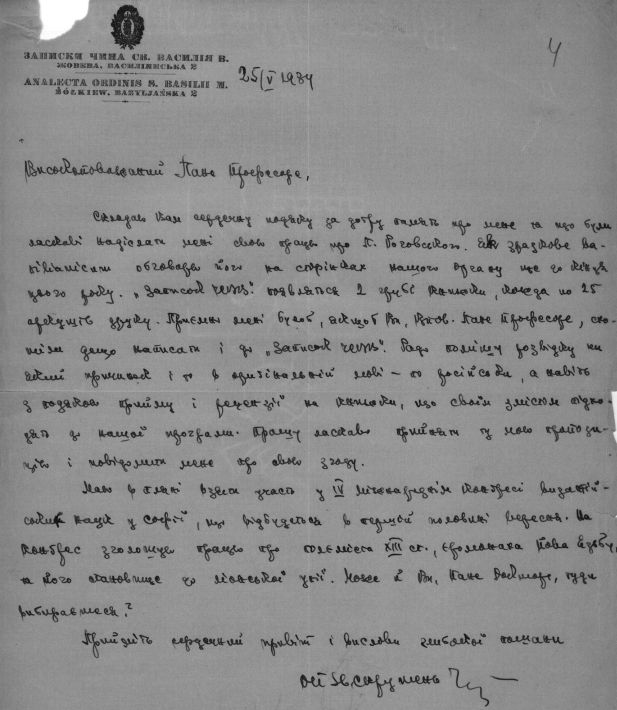 ЗАПИСКИ ЧИНА СВ. ВАСИЛІЯ В.
ЖОВКВА, ВАСИЛІЯНСЬКА 2
ANALECTA ORDINIS S. BASILII M.
ŻÓŁKIEW, BAZYLJAŃSKA 2
25/V 1934
4
Високоповажаний Пане Професоре,
Складаю Вам сердечну подяку за добру память про мене та що були
ласкаві надіслати мені свою працю про П. Роговського. Як зразкове
обговорю його на сторінках нашого органу ще до кінця
цього року. „Записок ЧСВВ." появляться 2 грубі книжки, кожда по 25
аркушів друку. Приємно мені було б, якщоб Ви, Впов. Пане Професоре, схо-
тіли дещо написати і до „Записок ЧСВВ". Радо поміщу розвідку чи
який причинок і то в оригінальній мові – по російськи, а навіть
з подякою прийму і рецензії на книжки, що своїм змістом підхо-
дять до нашої програми. Прошу ласкаво прийняти цю мою пропози-
цію і повідомити мене про свою згоду.
Маю в пляні взяти участь у IV міжнароднім Конґресі візантій-
ських наук у Софії, що відбудеться в першій половині вересня. На
Конґрес зголошую працю про полєміста XIII ст., єромонаха Йова
та його становище до ліонської унії. Може й Ви, Пане Докторе, туди
вибираєтеся?
Прийміть сердечний привіт і вислови глибокої пошани
ой Йосскрутень ЧСВВ